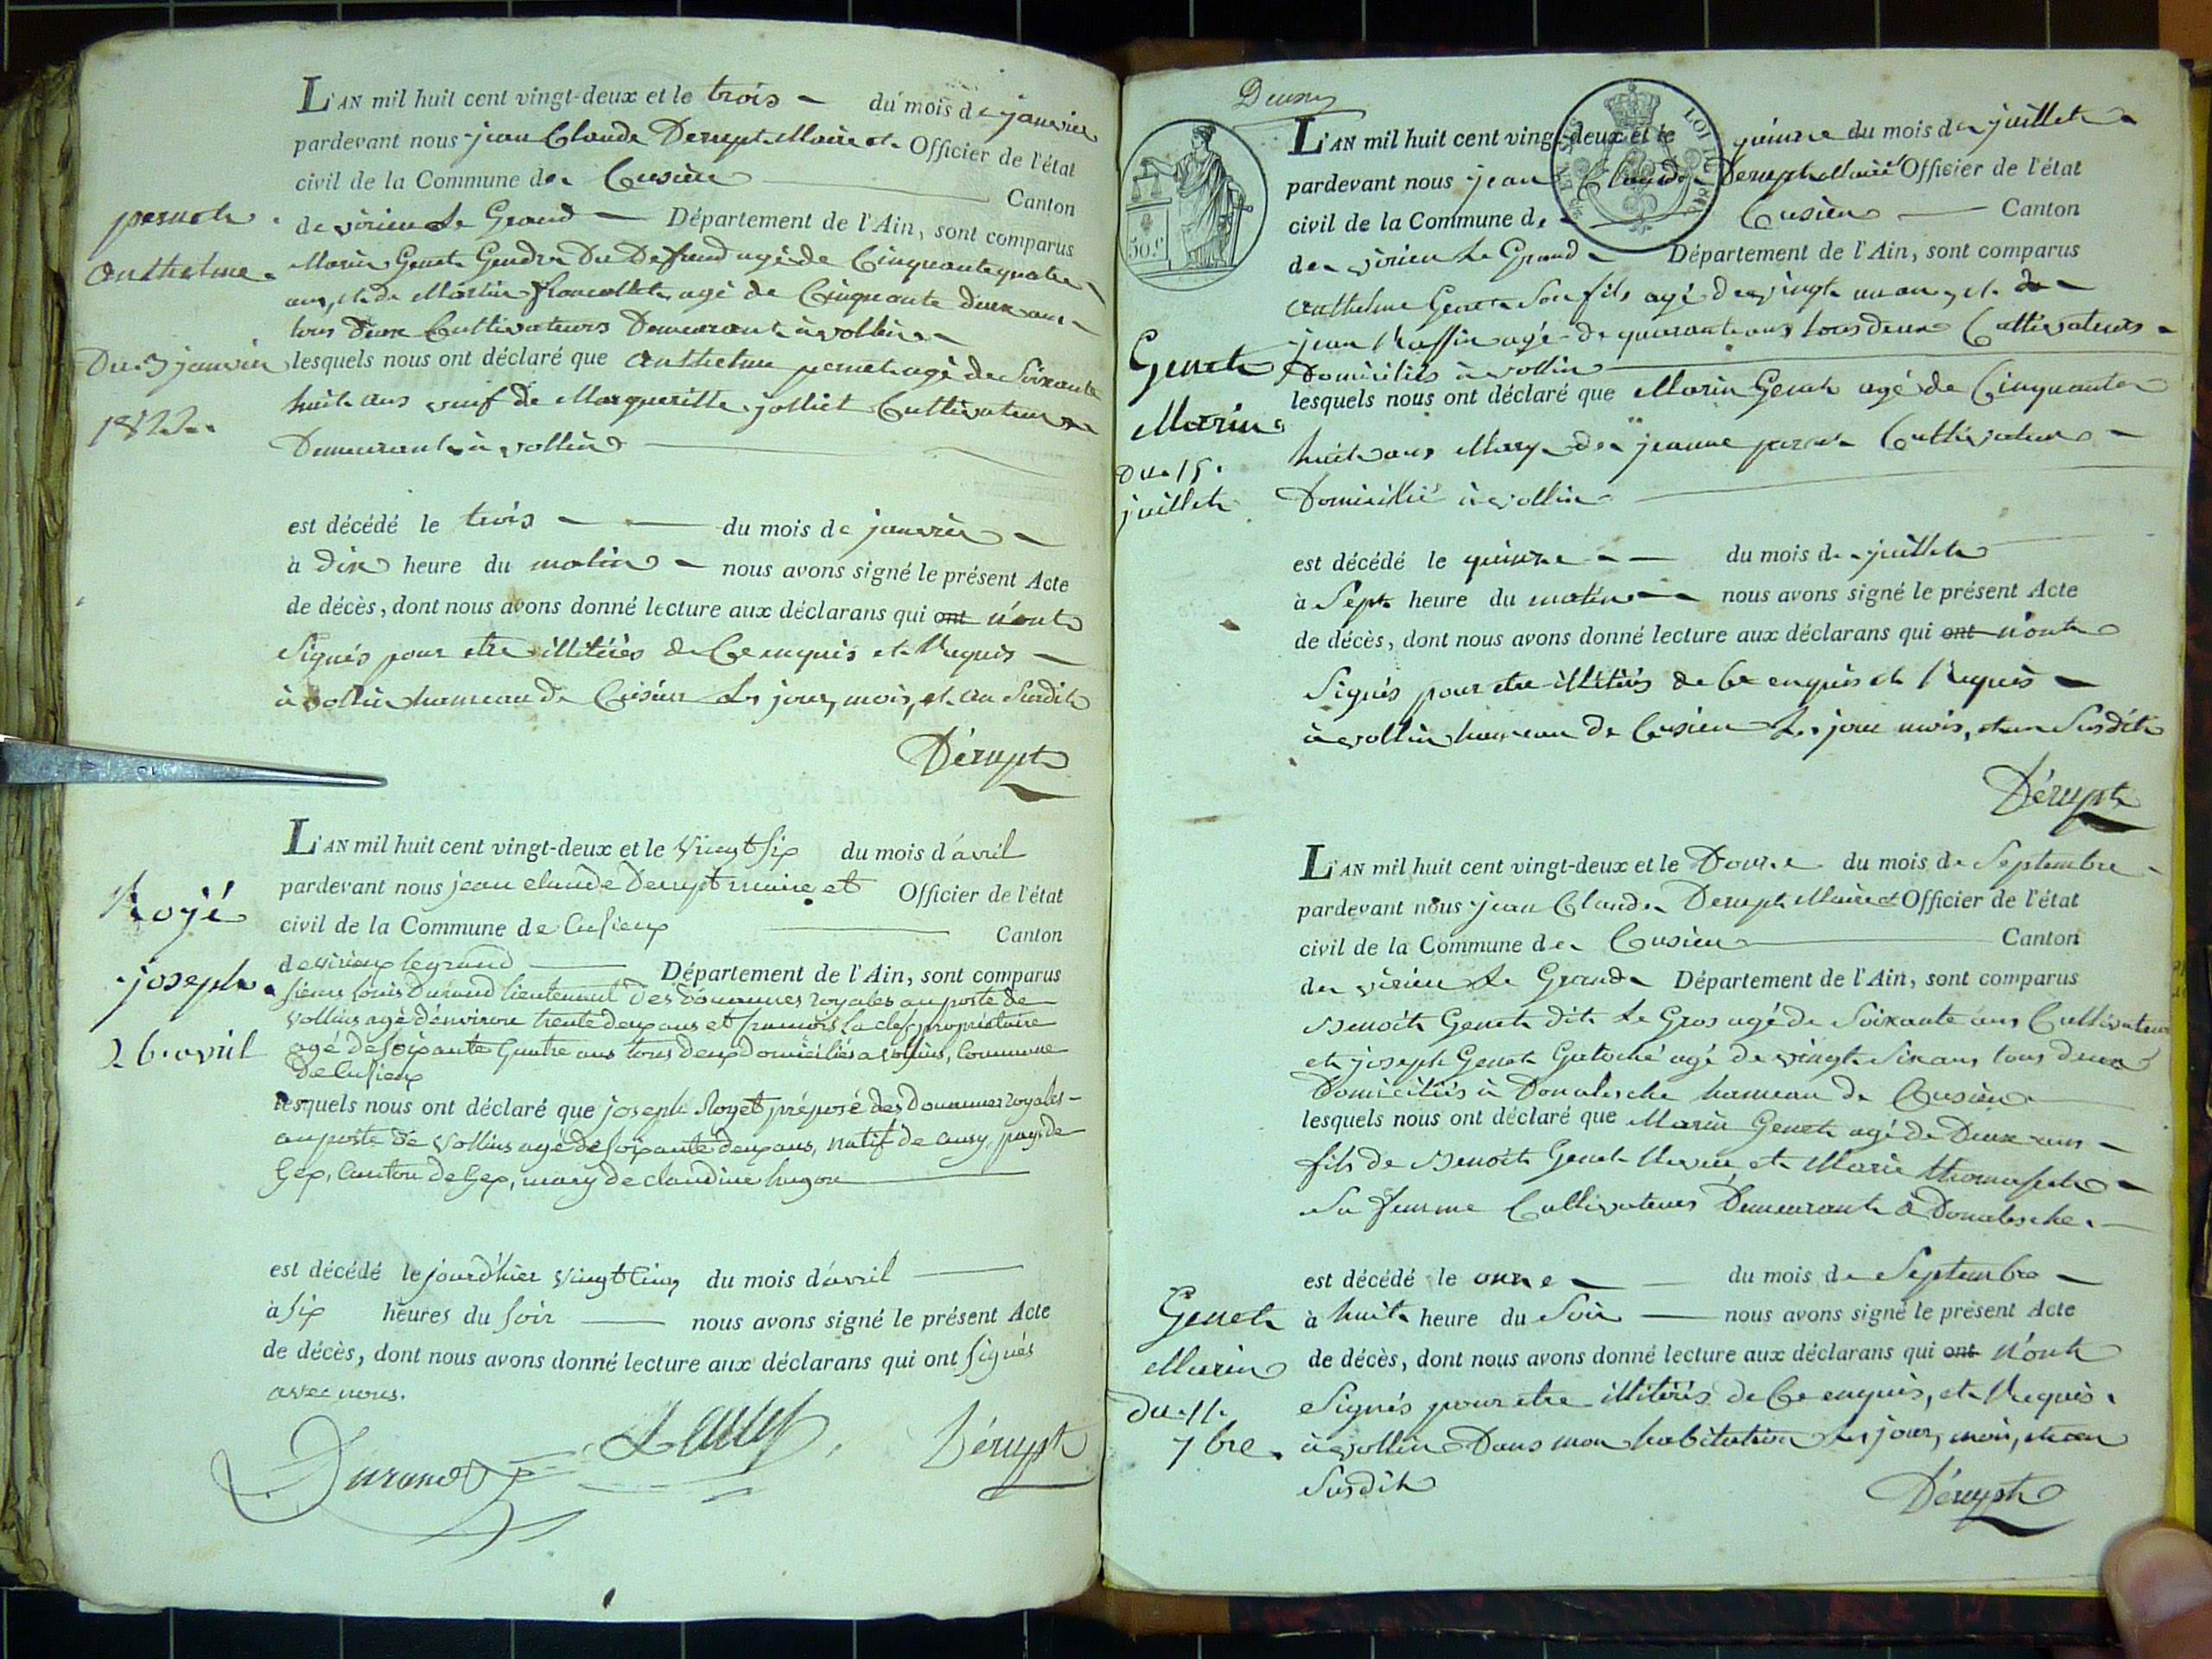 L'AN mil huit cent vingt-deux et le trois du mois de janvier
pardevant nous jean Claude Derupt Maire et Officier de l'état
civil de la Commune de Cusieu Canton
de virieu Le Grand Département de l'Ain, sont comparus
pernet
Anthelme
Marin Genet Gendre Du Defund agé de Cinquante quatre
ans, et de Martin agé de Cinquante deux ans
tous deux Cultivateurs Demeurant à vollin
Du 3 janvier
1822
lesquels nous ont déclaré que Anthelme pernet agé de Soixante
huit ans veuf de Margueritte jolliet Cultivateur
Demeurant à vollin
est décédé le trois du mois de janvier
à dix heure du matin nous avons signé le présent Acte
de décès, dont nous avons donné lecture aux déclarans qui ont n'ont
Signés pour etre illitérés de Ce enquis et Requis
à vollin hameau de Cusieu Les jour, mois, et an Susdit
Dérupt
L'AN mil huit cent vingt-deux et le vingt six du mois d'avril
pardevant nous jean claude Derupt maire et Officier de l'état
civil de la Commune de Cusieux Canton
de virieux le grand Département de l'Ain, sont comparus
Royé
joseph
26 avril
sieurs louis Durand lieutenant des Douannes royales au poste de
vollins agé d'environ trente deux ans et francois La clef propriétaire
agé de soixante quatre ans tous deux domiciliés a vollins, Commune
de Cusieux
lesquels nous ont déclaré que joseph Royet préposé des Douannes royales
au poste de vollins agé de soixante deux ans, natif de pays de
Gex, Canton de Gex, mary de claudine hugon
est décédé le jourd'hier vingt cinq du mois d'avril
à six heures du soir nous avons signé le présent Acte
de décès, dont nous avons donné lecture aux déclarans qui ont signés
avec nous.
Durand Dérupt
L'AN mil huit cent vingt-deux et le quinze du mois de juillet
pardevant nous jean Claude Derupt Maire Officier de l'état
civil de la Commune de Cusieu Canton
de virieu Le Grand Département de l'Ain, sont comparus
50 c.
Anthelme Genet Son fils agé de vingt un ans, et de
jean Raffin agé de quarante ans tous deux Cultivateurs
Domiciliés à vollin
Genet
Marin
Du 15
juillet
lesquels nous ont déclaré que Marin Genet agé de Cinquante
huit ans Mary de jeanne Cultivateur
Domicillié à vollin
est décédé le quinze du mois de juillet
à Sept heure du matin nous avons signé le présent Acte
de décès, dont nous avons donné lecture aux déclarans qui ont n'ont
Signés pour etre illitérés de Ce enquis et Requis
à vollin hameau de Cusieu Les jour mois, et an Susdit
Dérupt
L'AN mil huit cent vingt-deux et le Douze du mois de Septembre
pardevant nous jean Claude Derupt Maire et Officier de l'état
civil de la Commune de Cusieu Canton
de virieu Le Grand Département de l'Ain, sont comparus
Benoit Genet dit Le Gros agé de Soixante ans Cultivateur
et joseph Genet agé de vingt Six ans tous deux
Domiciliés à hameau de Cusieu
lesquels nous ont déclaré que Marin Genet agé de Deux ans
fils de Benoit Genet et Marie
Sa femme Cultivateurs Demeurant à
est décédé le onze du mois de Septembre
Genet
Marin
Du 11
7bre
à huit heure du Soir nous avons signé le présent Acte
de décès, dont nous avons donné lecture aux déclarans qui ont n'ont
Signés pour etre illitérés de Ce enquis, et Requis
à vollin Dans mon habitation Les jour, mois, et an
Susdit
Dérupt